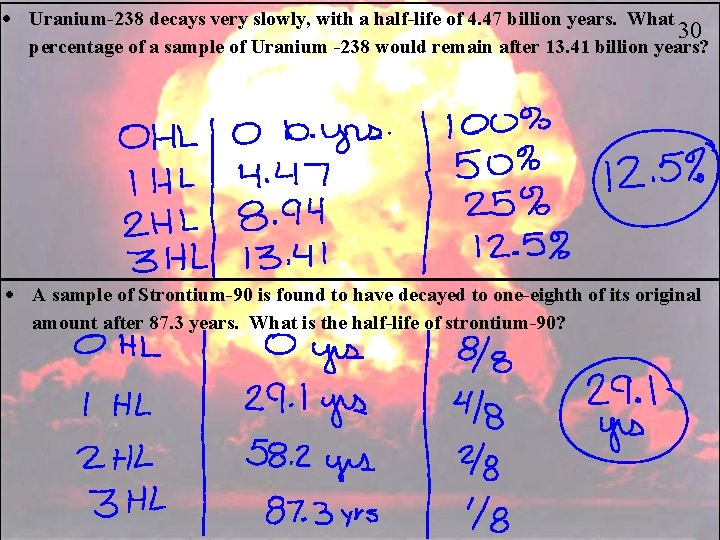 • Uranium-238 decays very slowly, with a half-life of 4.47 billion years. What
30
percentage of a sample of Uranium -238 would remain after 13.41 billion years?
0HL 0 b.yrs. 100%
1 HL 4.47 50%
2HL 8.94 25%
3HL 13.41 12.5%
12.5%
• A sample of Strontium-90 is found to have decayed to one-eighth of its original
amount after 87.3 years. What is the half-life of strontium-90?
0 HL 0 yrs 8/8
1 HL 29.1 yrs 4/8
2 HL 58.2 yrs 2/8
3 HL 87.3 yrs 1/8
29.1
yrs